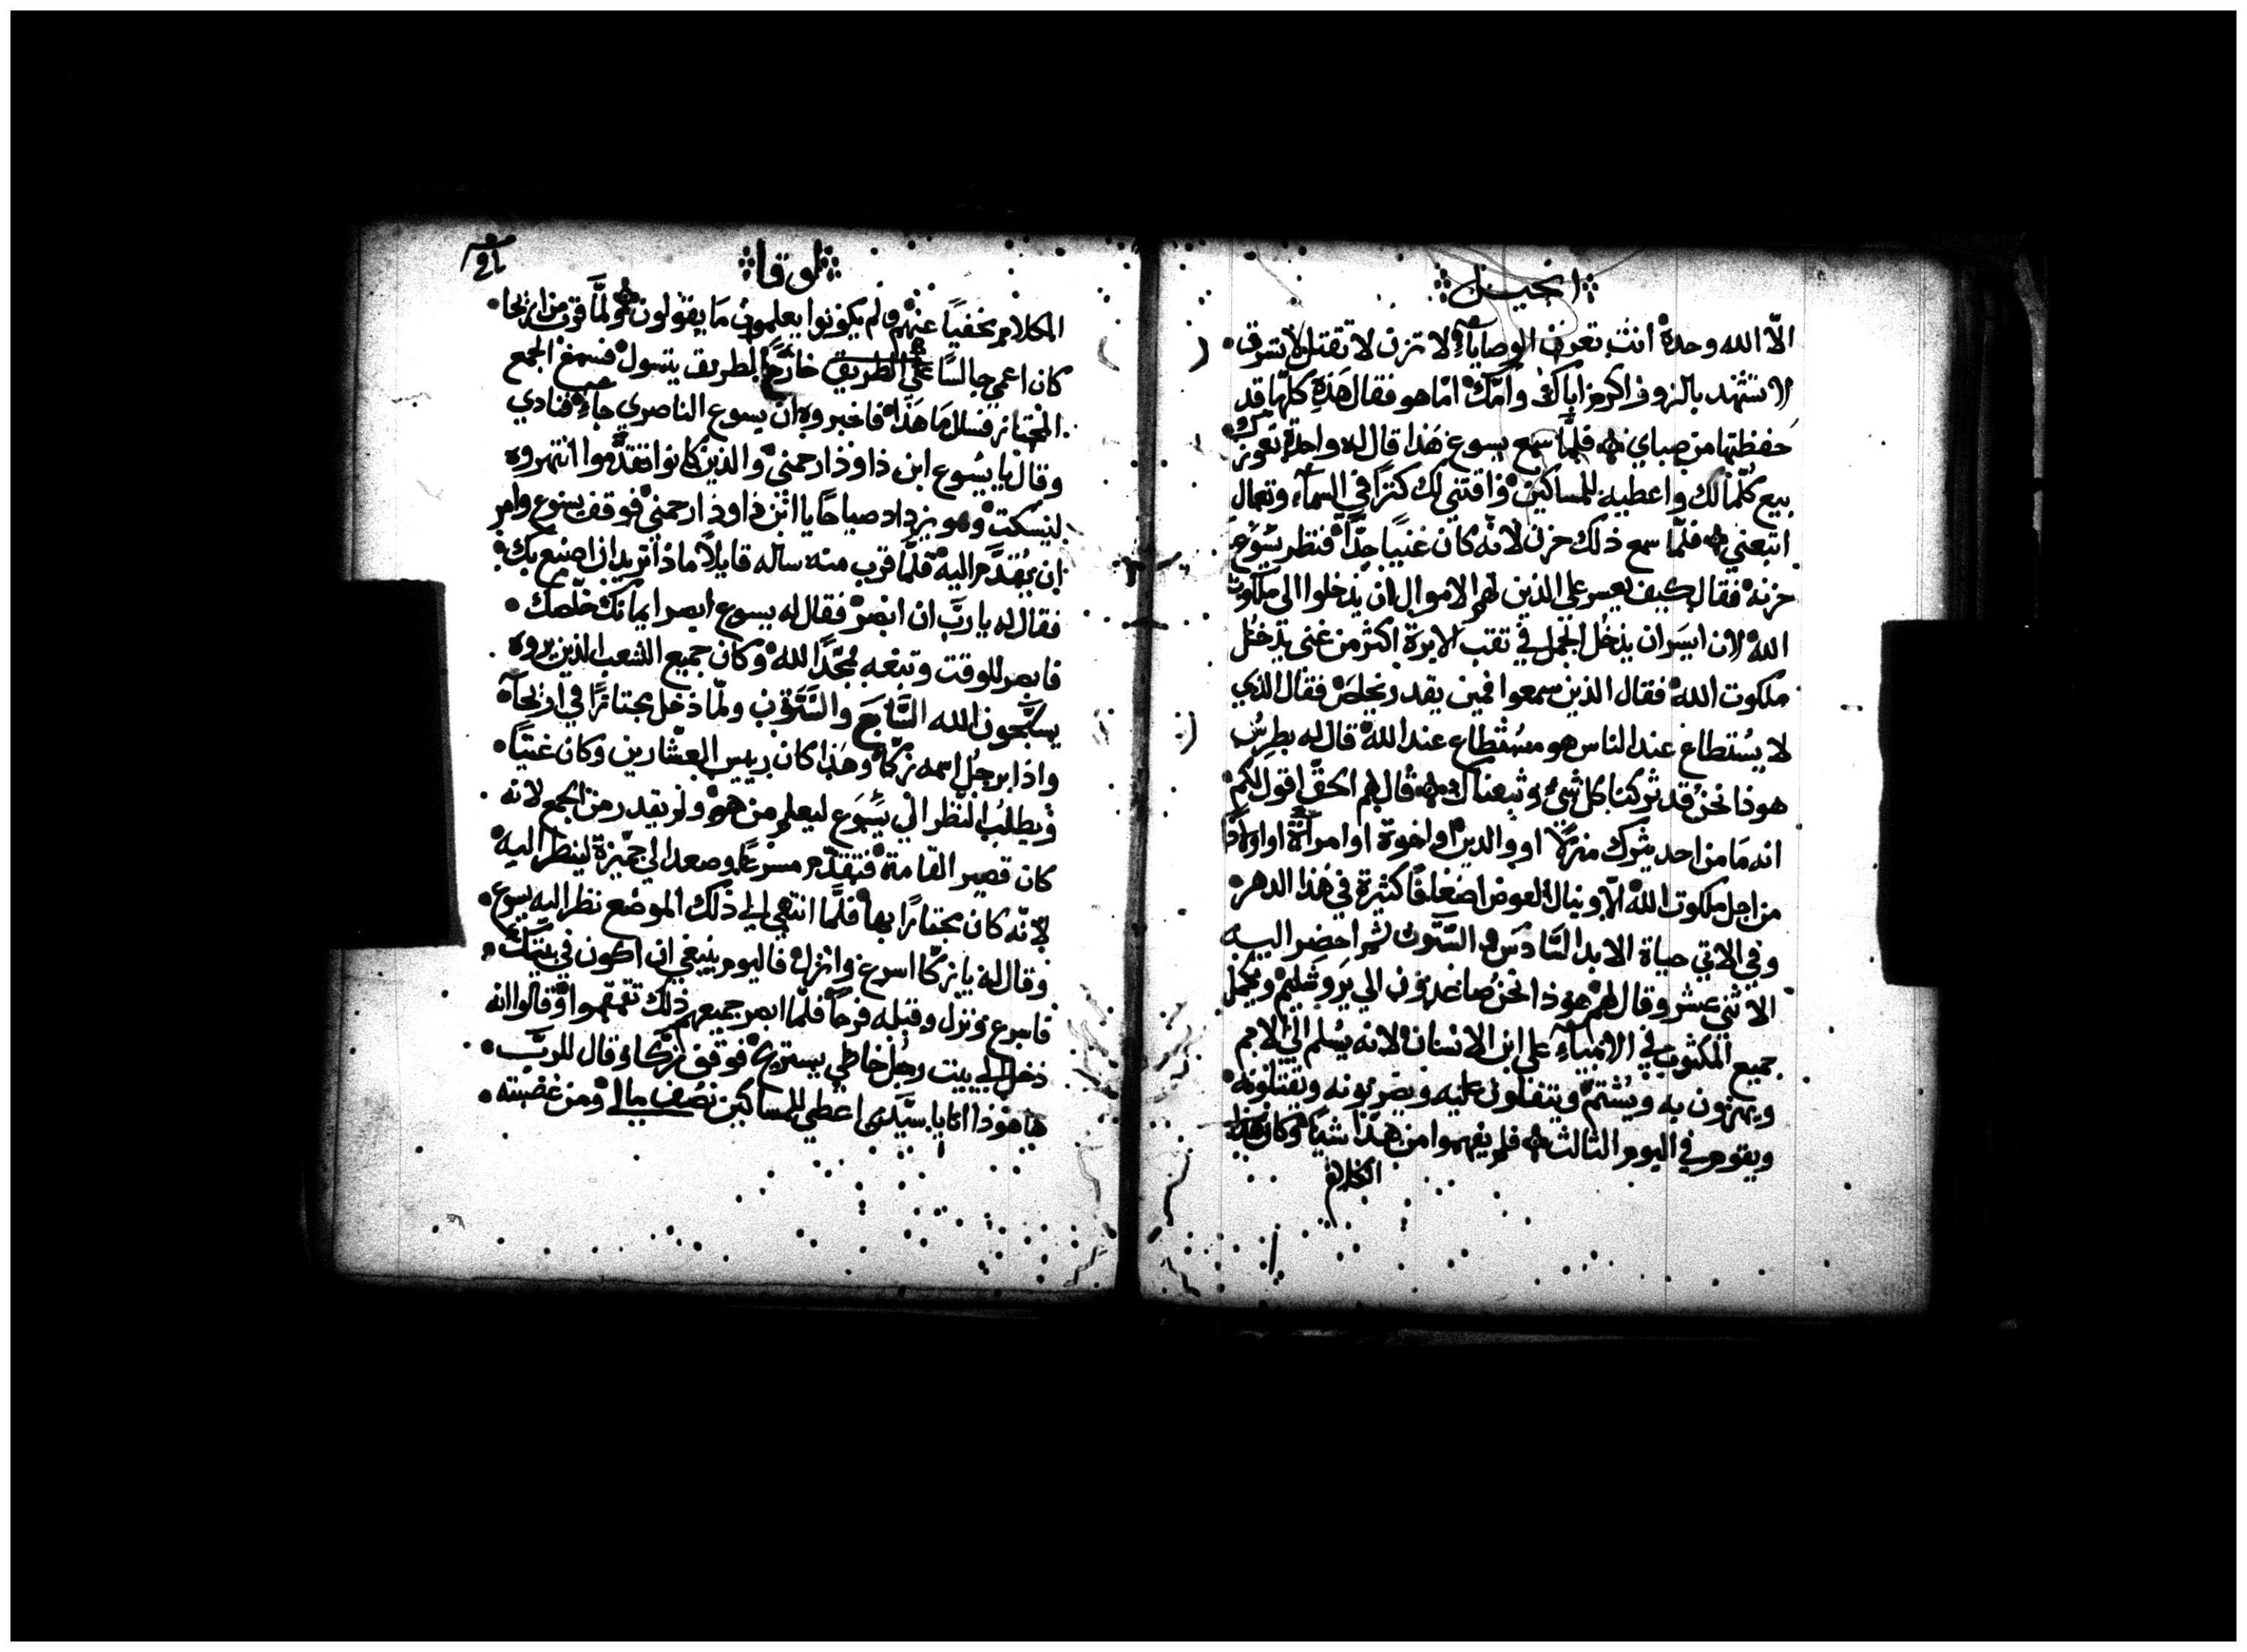 انجيل
الّا الله وحده انت تعرف الوصايا لا تزن لا تقتل لا تسرق
لا تشهد بالزور اكرم اباك وامّك امّا هو فقال هذه كلّها قد
حفظتها من صباي فلمّا سمع يسوع هذا قال له واحدة تعوزك
بيع كلّما لك واعطيه للمساكين واقتني لك كنزًا في السمآء وتعال
اتبعني فلمّا سمع ذلك حزن لانّه كان غنيًا جدًّا فنظر يسوع
حزنه فقال كيف يعسر على الذين لهم الاموال ان يدخلوا الى ملكوت
الله لان ايسر ان يدخل الجمل في تقب الابرة اكثر من غني يدخل
ملكوت الله فقال الذين سمعوا فمين يقدر يخلص فقال الذي
لا يستطاع عند الناس هو مستطاع عند الله قال له بطرس
هوذا نحن قد تركنا كل شيء وتبعناك قال لهم الحقّ اقول لكم
انه ما من احد يترك منزلًا او والدين او اخوة او امرأة او اولادًا
من اجل ملكوت الله الّا وينال العوض اضعافًا كثيرة في هذا الدهر
وفي الاتي حياة الابد السّادس والستّون ثم احضر اليه
الاثني عشر وقال لهم هوذا نحن صاعدون الى يروشليم ويكمل
جميع المكتوب في الانبياء على ابن الانسان لانه يسلم الى الامم
ويهزون به ويشتم ويتفلون عليه ويضربونه ويقتلونه
ويقوم في اليوم الثالث فلم يفهموا من هذا شيًا وكان هذا
الكلام
لوقا
الكلام مخفيًا عنهم ولم يكونوا يعلمون ما يقولون ولمّا قرب من اريحا
كان اعمى جالسًا على الطريق خارجًا لطريق يتسول فسمع الجمع
المجتاز فسال ما هذا فاخبروه ان يسوع الناصري جاء فنادي
وقال يا يسوع ابن داوذ ارحمني والذين كانوا تقدّموا انتهروه
ليسكت وهو يزداد صياحًا يا ابن داوذ ارحمني فوقف يسوع وامر
ان يقدّم اليه فلمّا قرب منه ساله قايلًا ماذا تريد ان اصنع بك
فقال له يا ربّ ان ابصر فقال له يسوع ابصر ايمانك خلّصك
فابصر للوقت وتبعه ممجّدًا لله وكان جميع الشعب الذين يروه
يسبّحون الله السّابع والستّون ولمّا دخل مجتازًا في اريحآ
واذا برجل اسمه زكّا وهذا كان رييس العشارين وكان غنيًّا
ويطلب النظر الى يسوع ليعلم من هو ولم يقدر من الجمع لانه
كان قصير القامة فتقدّم مسرعًا وصعد الى جمّيزة لينظر اليه
لانّه كان مجتازًا بها فلمّا انتهي الى ذلك الموضع نظر اليه يسوع
وقال له يا زكّا اسرع وانزل فاليوم ينبغي ان اكون في بيتك
فاسرع ونزل وقبله فرحًا فلمّا ابصر جميعهم ذلك تقمقموا وقالوا انه
دخل الى بيت رجل خاطي يستريح فوقف زكّا وقال للربّ
ها هوذا انا يا سيّدي اعطي للمساكين نصف مالي ومن غصبته